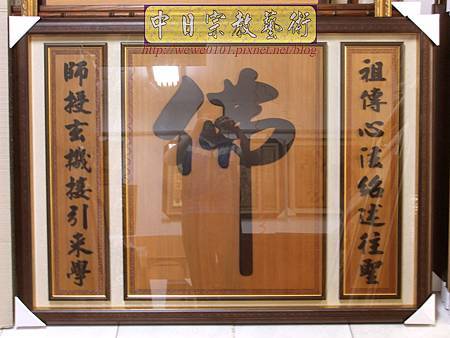 中日宗教藝術
http://wewe0101.pixnet.net/blog
祖傳心法紹述往聖
佛
師授玄機接引来學